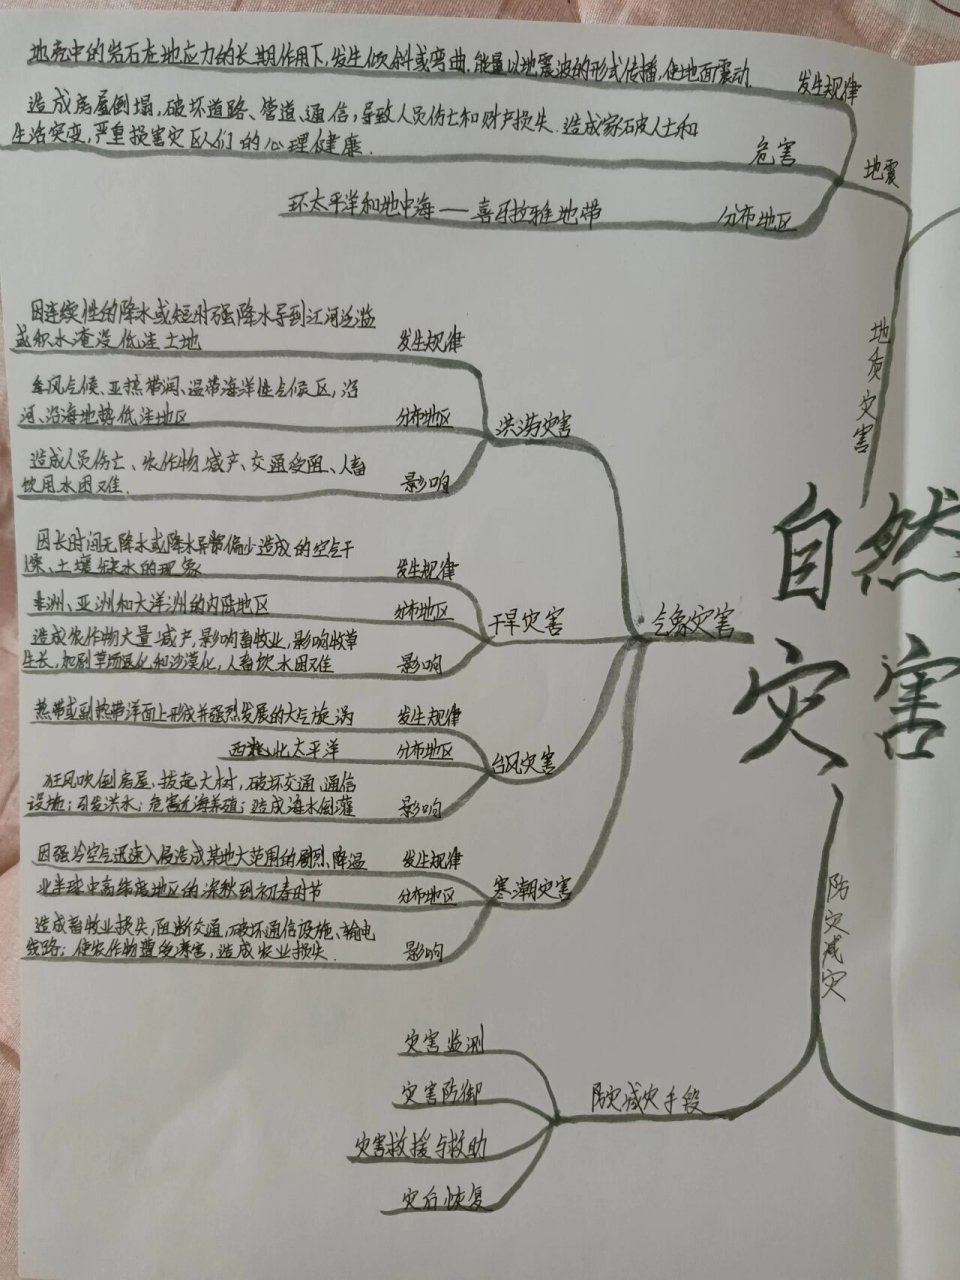 地壳中的岩石在地应力的长期作用下,发生倾斜或弯曲.能量以地震波的形式传播,使地面震动.
发生规律
造成房屋倒塌,破坏道路、管道、通信,导致人员伤亡和财产损失.造成家破人亡和
生活突变,严重损害灾区人们的心理健康.
危害
地震
环太平洋和地中海——喜马拉雅地带
分布地区
地质灾害
因连续性的降水或短时强降水导到江河泛滥
或积水淹没低洼土地
发生规律
季风气候、亚热带润、温带海洋性气候区,沿
河、沿海地势低洼地区
分布地区
洪涝灾害
造成人员伤亡、农作物减产、交通受阻、人畜
饮用水困难.
影响
因长时间无降水或降水异常偏少造成的空气干
燥、土壤缺水的现象
发生规律
非洲、亚洲和大洋洲的内陆地区
分布地区
干旱灾害
造成农作物大量减产,影响畜牧业,影响牧草
生长,加剧草场退化和沙漠化,人畜饮水困难
影响
气象灾害
自然
灾害
热带或副热带洋面上形成并强烈发展的大气旋涡
发生规律
西北太平洋
分布地区
台风灾害
狂风吹倒房屋、拔起大树,破坏交通、通信
设施;引发洪水;危害近海养殖;造成海水倒灌
影响
因强冷空气迅速入侵造成某地大范围的剧烈降温
发生规律
北半球中高纬度地区的深秋到初春时节
分布地区
寒潮灾害
造成畜牧业损失,阻断交通,破坏通信设施、输电
线路;使农作物遭受冻害,造成农业损失.
影响
防灾减灾
灾害监测
灾害防御
防灾减灾手段
灾害救援与救助
灾后恢复